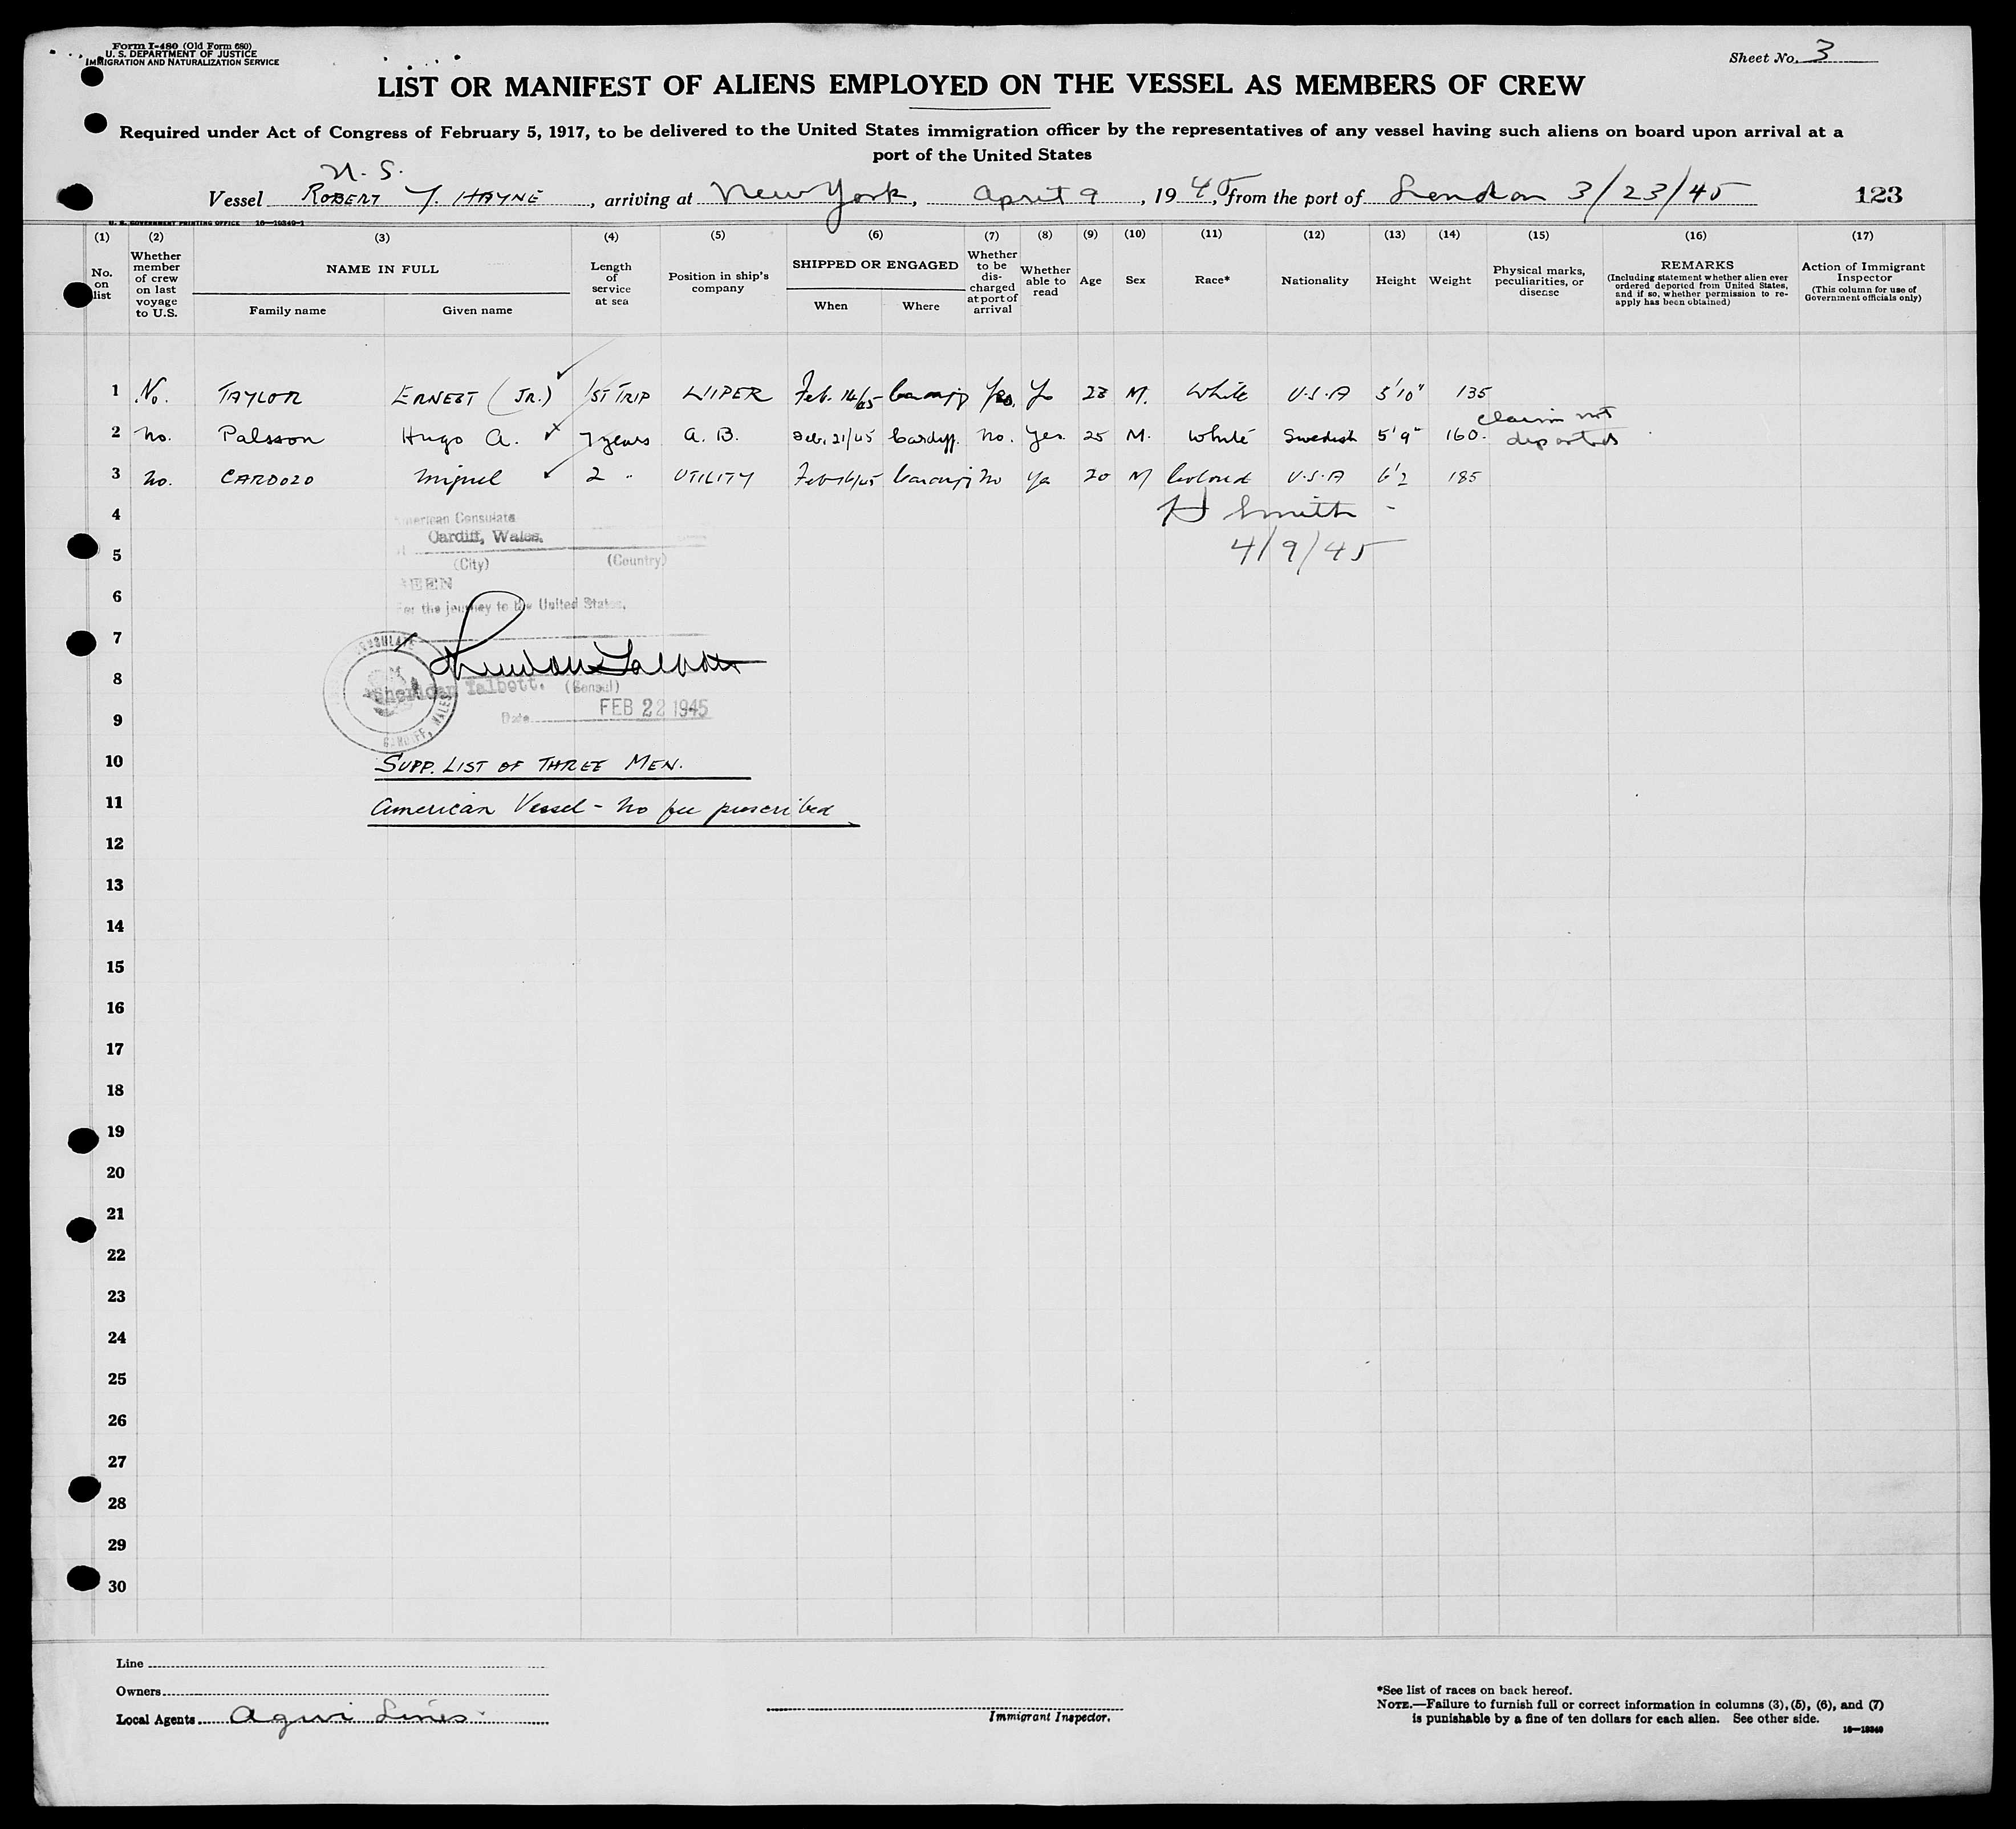 Form I-480 (Old Form 680)
U. S. DEPARTMENT OF JUSTICE
IMMIGRATION AND NATURALIZATION SERVICE
Sheet No. 3
LIST OR MANIFEST OF ALIENS EMPLOYED ON THE VESSEL AS MEMBERS OF CREW
Required under Act of Congress of February 5, 1917, to be delivered to the United States immigration officer by the representatives of any vessel having such aliens on board upon arrival at a
port of the United States
Vessel ROBERT Y. HAYNE, arriving at New York, April 9, 1945, from the port of London 3/23/45 123
U. S. GOVERNMENT PRINTING OFFICE 16—19349-1
(1) (2) (3) (4) (5) (6) (7) (8) (9) (10) (11) (12) (13) (14) (15) (16) (17)
No. on list
Whether member of crew on last voyage to U.S.
NAME IN FULL
Family name
Given name
Length of service at sea
Position in ship's company
SHIPPED OR ENGAGED
When
Where
Whether to be discharged at port of arrival
Whether able to read
Age
Sex
Race*
Nationality
Height
Weight
Physical marks, peculiarities, or disease
REMARKS
(Including statement whether alien ever ordered deported from United States, and if so, whether permission to reapply has been obtained)
Action of Immigrant Inspector
(This column for use of Government officials only)
1 No. TAYLOR ERNEST (JR.) 1ST TRIP WIPER Feb. 14/45 Cardiff Yes. Ys 23 M. White U.S.A 5'10" 135
2 No. Palsson Hugo A. 7 years A. B. Feb. 21/45 Cardiff. No. Yes. 25 M. White Swedish 5'9" 160. Claim not deported
3 No. CARDOZO Miguel 2 " UTILITY Feb 16/45 Cardiff No Ya 20 M Coloured U.S.A 6'2 185
4 H Smith -
American Consulate
Cardiff, Wales.
5 4/9/45
(City) (Country)
SEEN
6 For the journey to the United States.
7
8
Sheridan Talbott. (Consul)
CONSULATE
CARDIFF, WALES
9 Date FEB 22 1945
10 SUPP. LIST OF THREE MEN.
11 American Vessel - No fee prescribed
12
13
14
15
16
17
18
19
20
21
22
23
24
25
26
27
28
29
30
Line
Owners
Local Agents Agwi Lines
Immigrant Inspector.
*See list of races on back hereof.
NOTE.—Failure to furnish full or correct information in columns (3), (5), (6), and (7)
is punishable by a fine of ten dollars for each alien. See other side.
16—19349